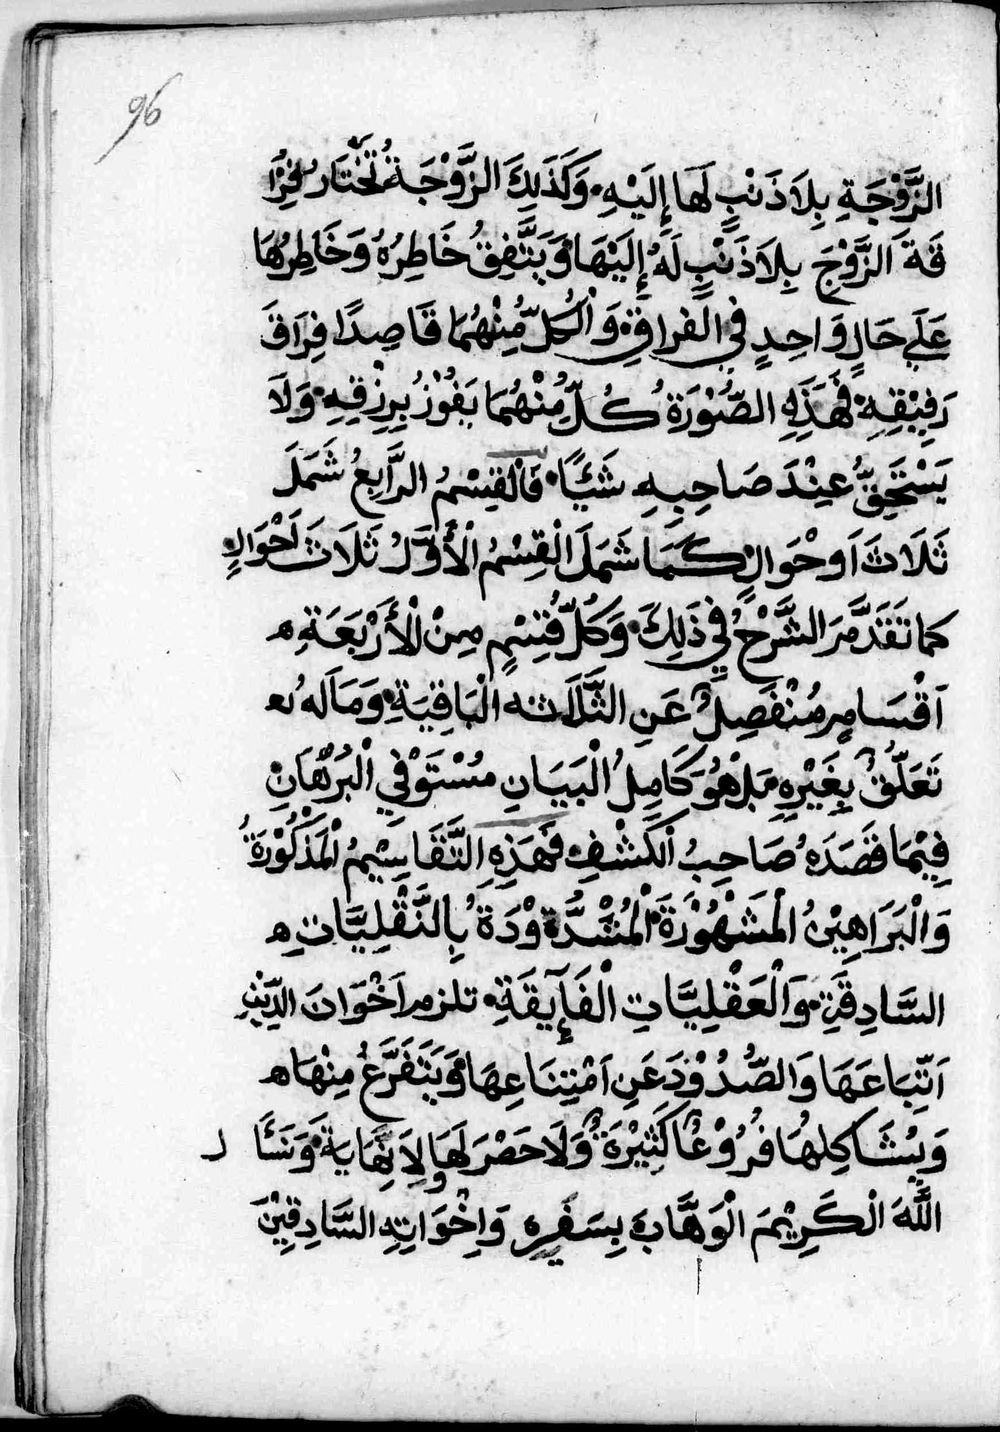 96
الزَّوْجَةِ بِلَا ذَنْبٍ لَهَا إِلَيْهِ وَكَذَلِكَ الزَّوْجَةُ تُخْتَارُ فِرَا
قَةَ الزَّوْجَ بِلَا ذَنْبٍ لَهُ إِلَيْهَا وَيَتَّفِقُ خَاطِرُهُ وَخَاطِرُهَا
عَلَي حَالٍ وَاحِدٍ فِي الفراقِ وَالْكُلُّ مِّنْهُمَا قَاصِدًا فِرَاقَ
رَفِيْقِهِ فَهَذِهِ الصُّوْرَةُ كُلٌّ مِنْهُمَا يَفُوْزُ بِرِزْقِهِ وَلَا
يَسْتَحِقُّ عِنْدَ صَاحِبِهِ شَيْئًا فَالْقِسْمُ الرَّابِعُ شَمَلَ
ثَلَاثَ اَوحْوَالٍ كَمَا شَمَلَ الْقِسْمُ الْأَوَّلُ ثَلَاثَ اَحْوَالٍ
كما تَقَدَّمَ الشَّرْحُ فِي ذَلِكَ وَكُلُّ قِسْمٍ مِنْ الْأَرْبَعَةِ ه
اَقْسَامٍ مُنْفَصِلٌ عَنِ الثَّلَاثه الْبَاقِيَةِ وَمَا لَهُ
تَعَلُّقٌ بِغَيْرِهِ بَلْ هُوَ كَامِلُ الْبَيَانِ مُسْتَوْفِي الْبُرْهَانِ
فِيْمَا قَصَدَهُ صَاحِبُ الْكَشْفِ فَهَذِهِ التَّقَاسِيْمُ الْمَذْكُوْرَةُ
وَالْبَرَاهِيْنُ الْمَشْهُوْرَةَ الْمُشْدُّوْدَةُ بِالنَّقْلِيَّاتِ ه
السَّادِقَةِ وَالْعَقْلِيَّاتِ الْفَآيِقَةِ تلزم اَخْوَانَ الدِّيْنِ
اَتِّبَاعَهَا وَالصُّدُوْدَ عَنِ اَمْتِنَاعِهَا وَيَتَفَرَّعُ مِنْهَا ه
وَيُشَاكِلهَا فُرُوْعًا كَثِيْرَةً وَلَا حَصْرَ لَهَا وَلَا نِهَايَةَ وَنَسَأ ل
اللَّهَ الْكَرِيْمَ الْوَهَّابَ بِسَفَرِهِ وَاِخْوَانِهِ السَّادِقِيْنَ